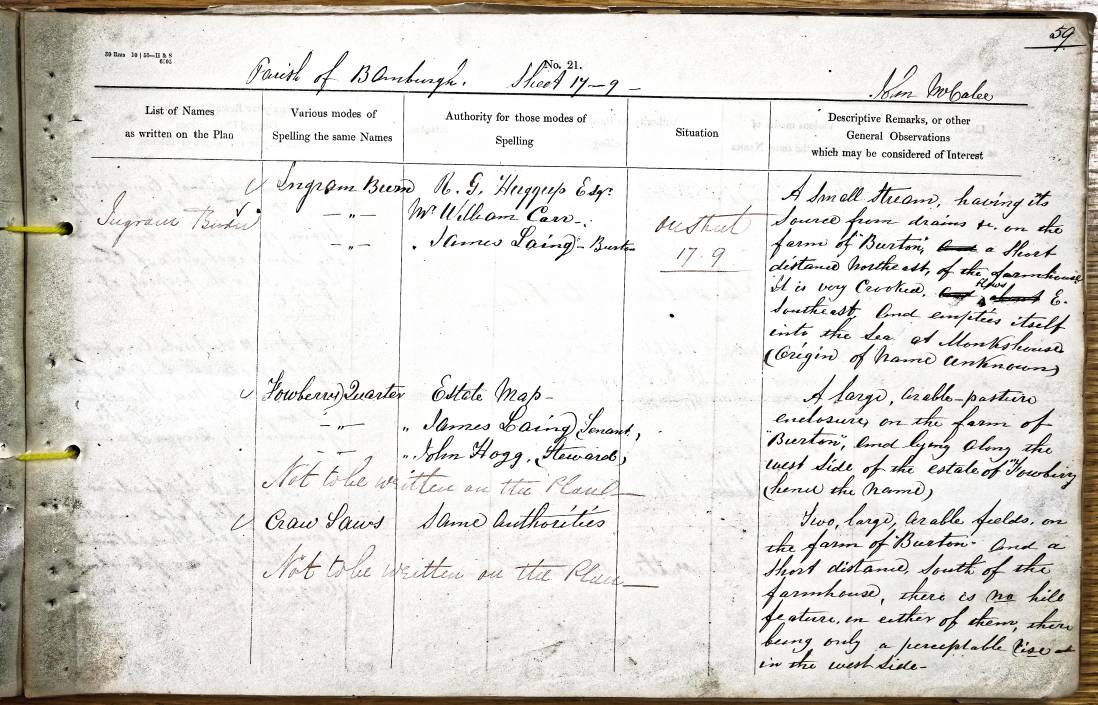 59
30 Rms 10 | 55—H & S
No. 21.
Parish of Bamburgh. Sheet 17-9-
John McCalee
List of Names
as written on the Plan
Various modes of
Spelling the same Names
Authority for those modes of
Spelling
Situation
Descriptive Remarks, or other
General Observations
which may be considered of Interest
Ingram Burn
Ingram Burn R. G. Huggup Esqr.
— " — Mr William Carr-.
— " — " James Laing - Burton
on sheet
17.9
A Small Stream, having its
Source from drains &c. on the
farm of "Burton", a Short
distance Northeast, of the farmhouse
It is very Crooked, flows E.
Southeast, And empties itself
into the Sea at Monkshouse
(Origin of Name Unknown)
Fowberry Quarter Estate Map-
— " — " James Laing, Tenant,
— " — " John Hogg, (Steward)
Not to be written on the Plans
A large, Arable-pasture
enclosure, on the farm of
"Burton", And lying along the
west side of the estate of "Fowbirry
(hence the Name)
Craw Laws Same Authorities
Not to be written on the Plan
Two, large, Arable fields, on
the farm of "Burton" And a
Short distance, South of the
farmhouse, there is no hill
feature, in either of them, there
being only a perceptable rise at
in the west Side-